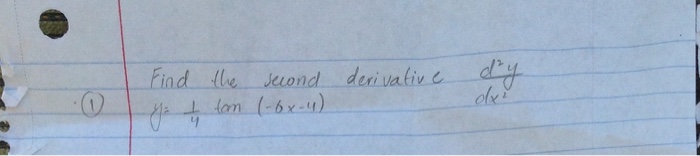 Find the second derivative d²y/dx²
① y = 1/4 tan (-6x-4)